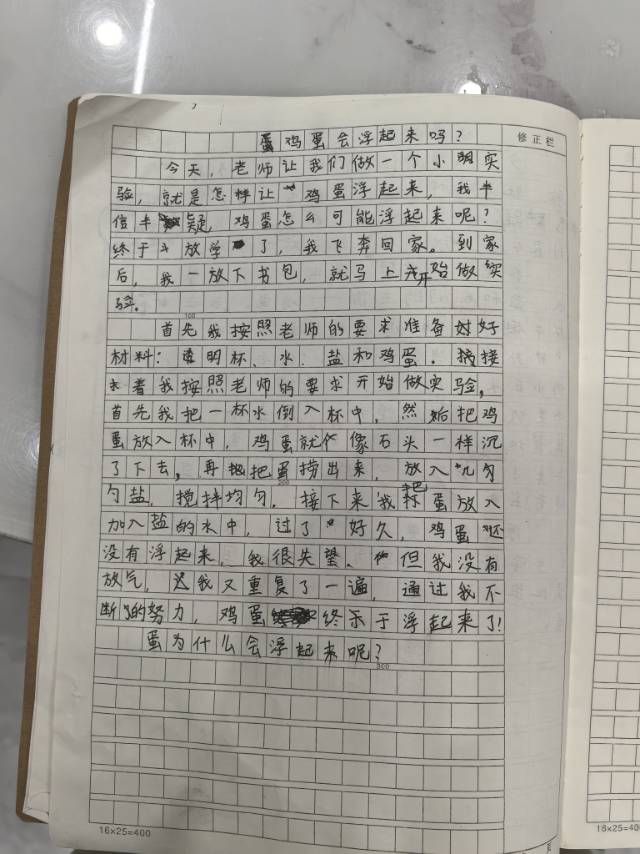 鸡蛋会浮起来吗？
修正栏
今天，老师让我们做一个小明实
验，就是怎样让鸡蛋浮起来，我半
信半疑，鸡蛋怎么可能浮起来呢？
终于放学了，我飞奔回家。到家
后，我一放下书包，就马上开始做实
验。
100
首先我按照老师的要求准备好
材料：透明杯、水、盐和鸡蛋。接
着我按照老师的要求开始做实验，
首先我把一杯水倒入杯中，然始把鸡
蛋放入杯中，鸡蛋就像石头一样沉
了下去，再把蛋捞出来，放入几勺
200
勺盐，搅拌均匀，接下来我把蛋放入
加入盐的水中，过了好久，鸡蛋还
没有浮起来，我很失望、但我没有
放气，我又重复了一遍，通过我不
断的努力，鸡蛋终于浮起来了！
蛋为什么会浮起来呢？
300
16×25=400
16×25=40